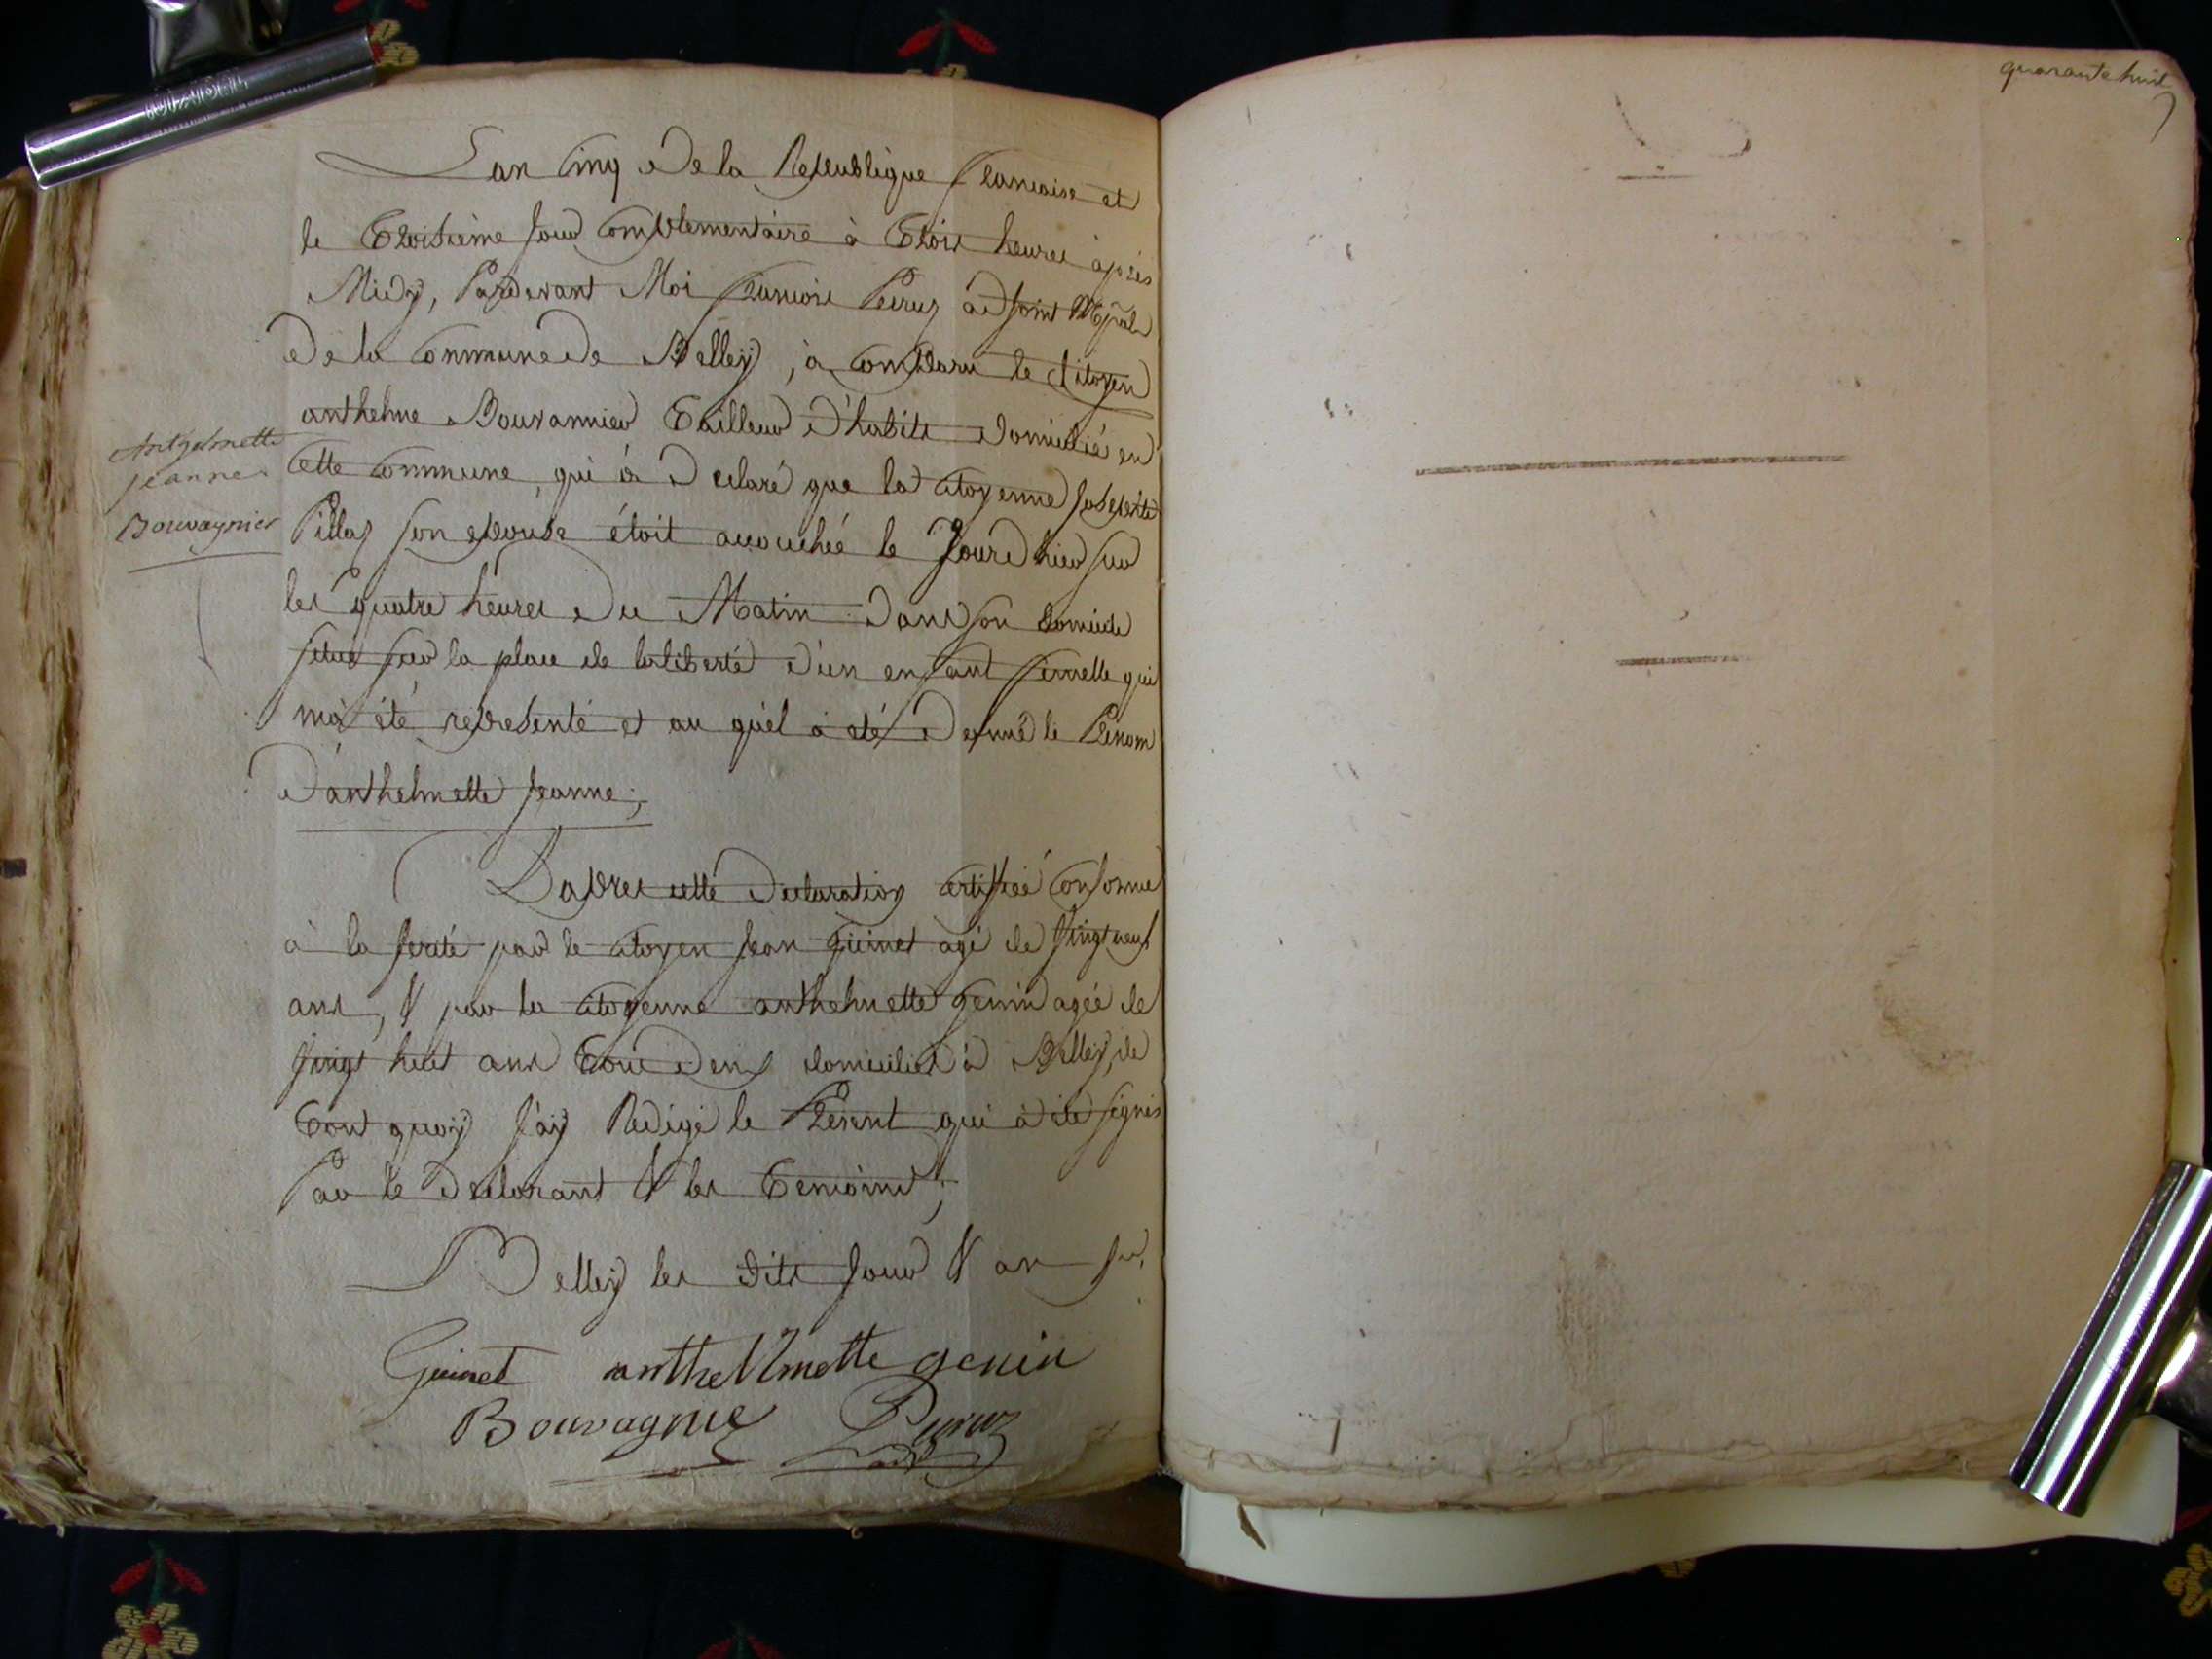 quarante huit
Lan Cinq De la Republique francaise et
le Troisieme jour Complementaire à Trois heures après
Midy, Pardevant Moi francois Peruz adjoint Mpal
De la Commune De Belley, à Comparu le Citoyen
anthelme Bouvannier Tailleur D'habits Domicilié en
Cette Commune, qui à Declaré que la Citoyenne Josephte
Pillaz son epouse étoit accouchée le Jour D'hier sur
les quatre heures Du Matin Dans son Domicile
situé sur la place de la liberté D'un enfant femelle qui
m'a été representé et au quel à été Donné le Prénom
D'anthelmette Jeanne;
Anthelmette
jeanne
Bouvagnier
D'apres cette Declaration certifiée Conforme
à la verité par le Citoyen Jean Guinet agé de vingt neuf
ans, & par la Citoyenne anthelmette genin agée de
vingt huit ans Tous Deux domiciliés à Belley, de
Tout quoy J'ay Redigé le Present qui à été signés
Par le Declarant & les Temoins;
Belley les dits Jour & an sus.
Guinet anthellmette genin
Bouvagnie Peruz